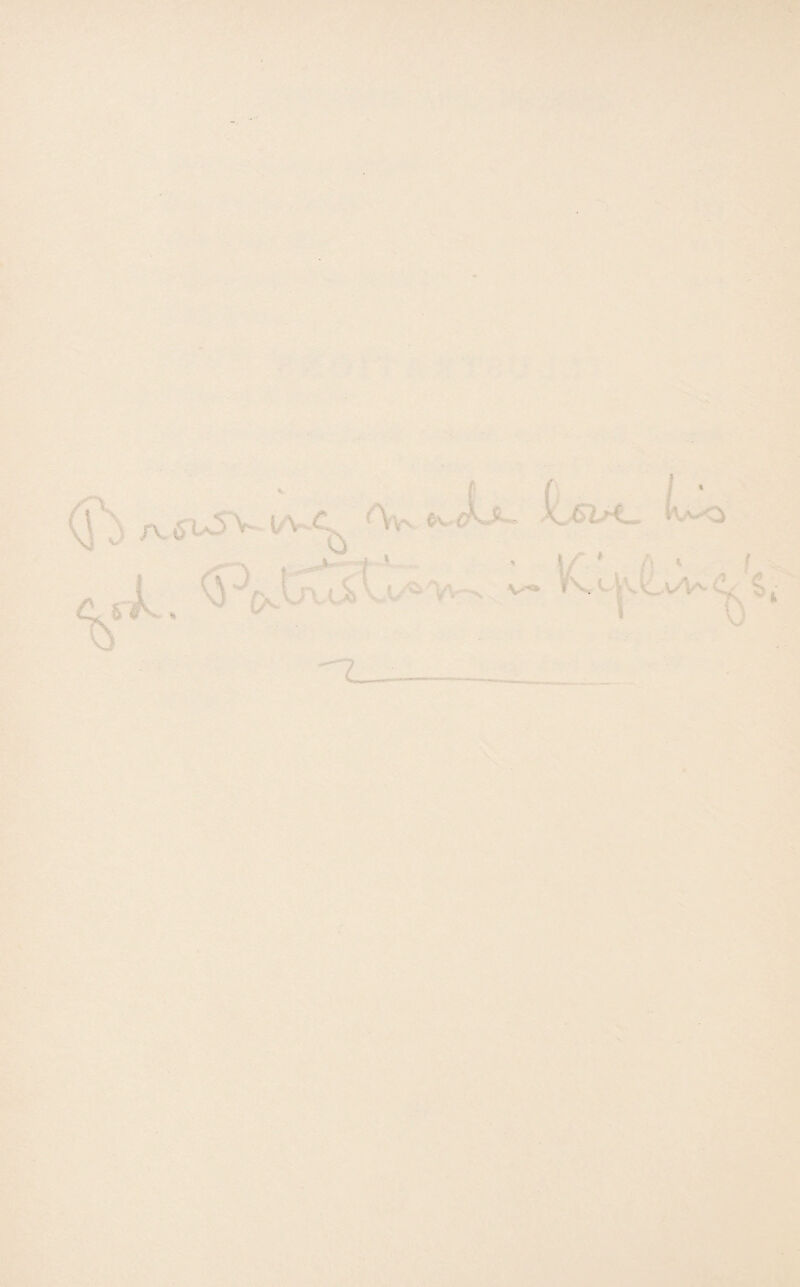 Browning made love his
god. Patriotism is Kipling's.